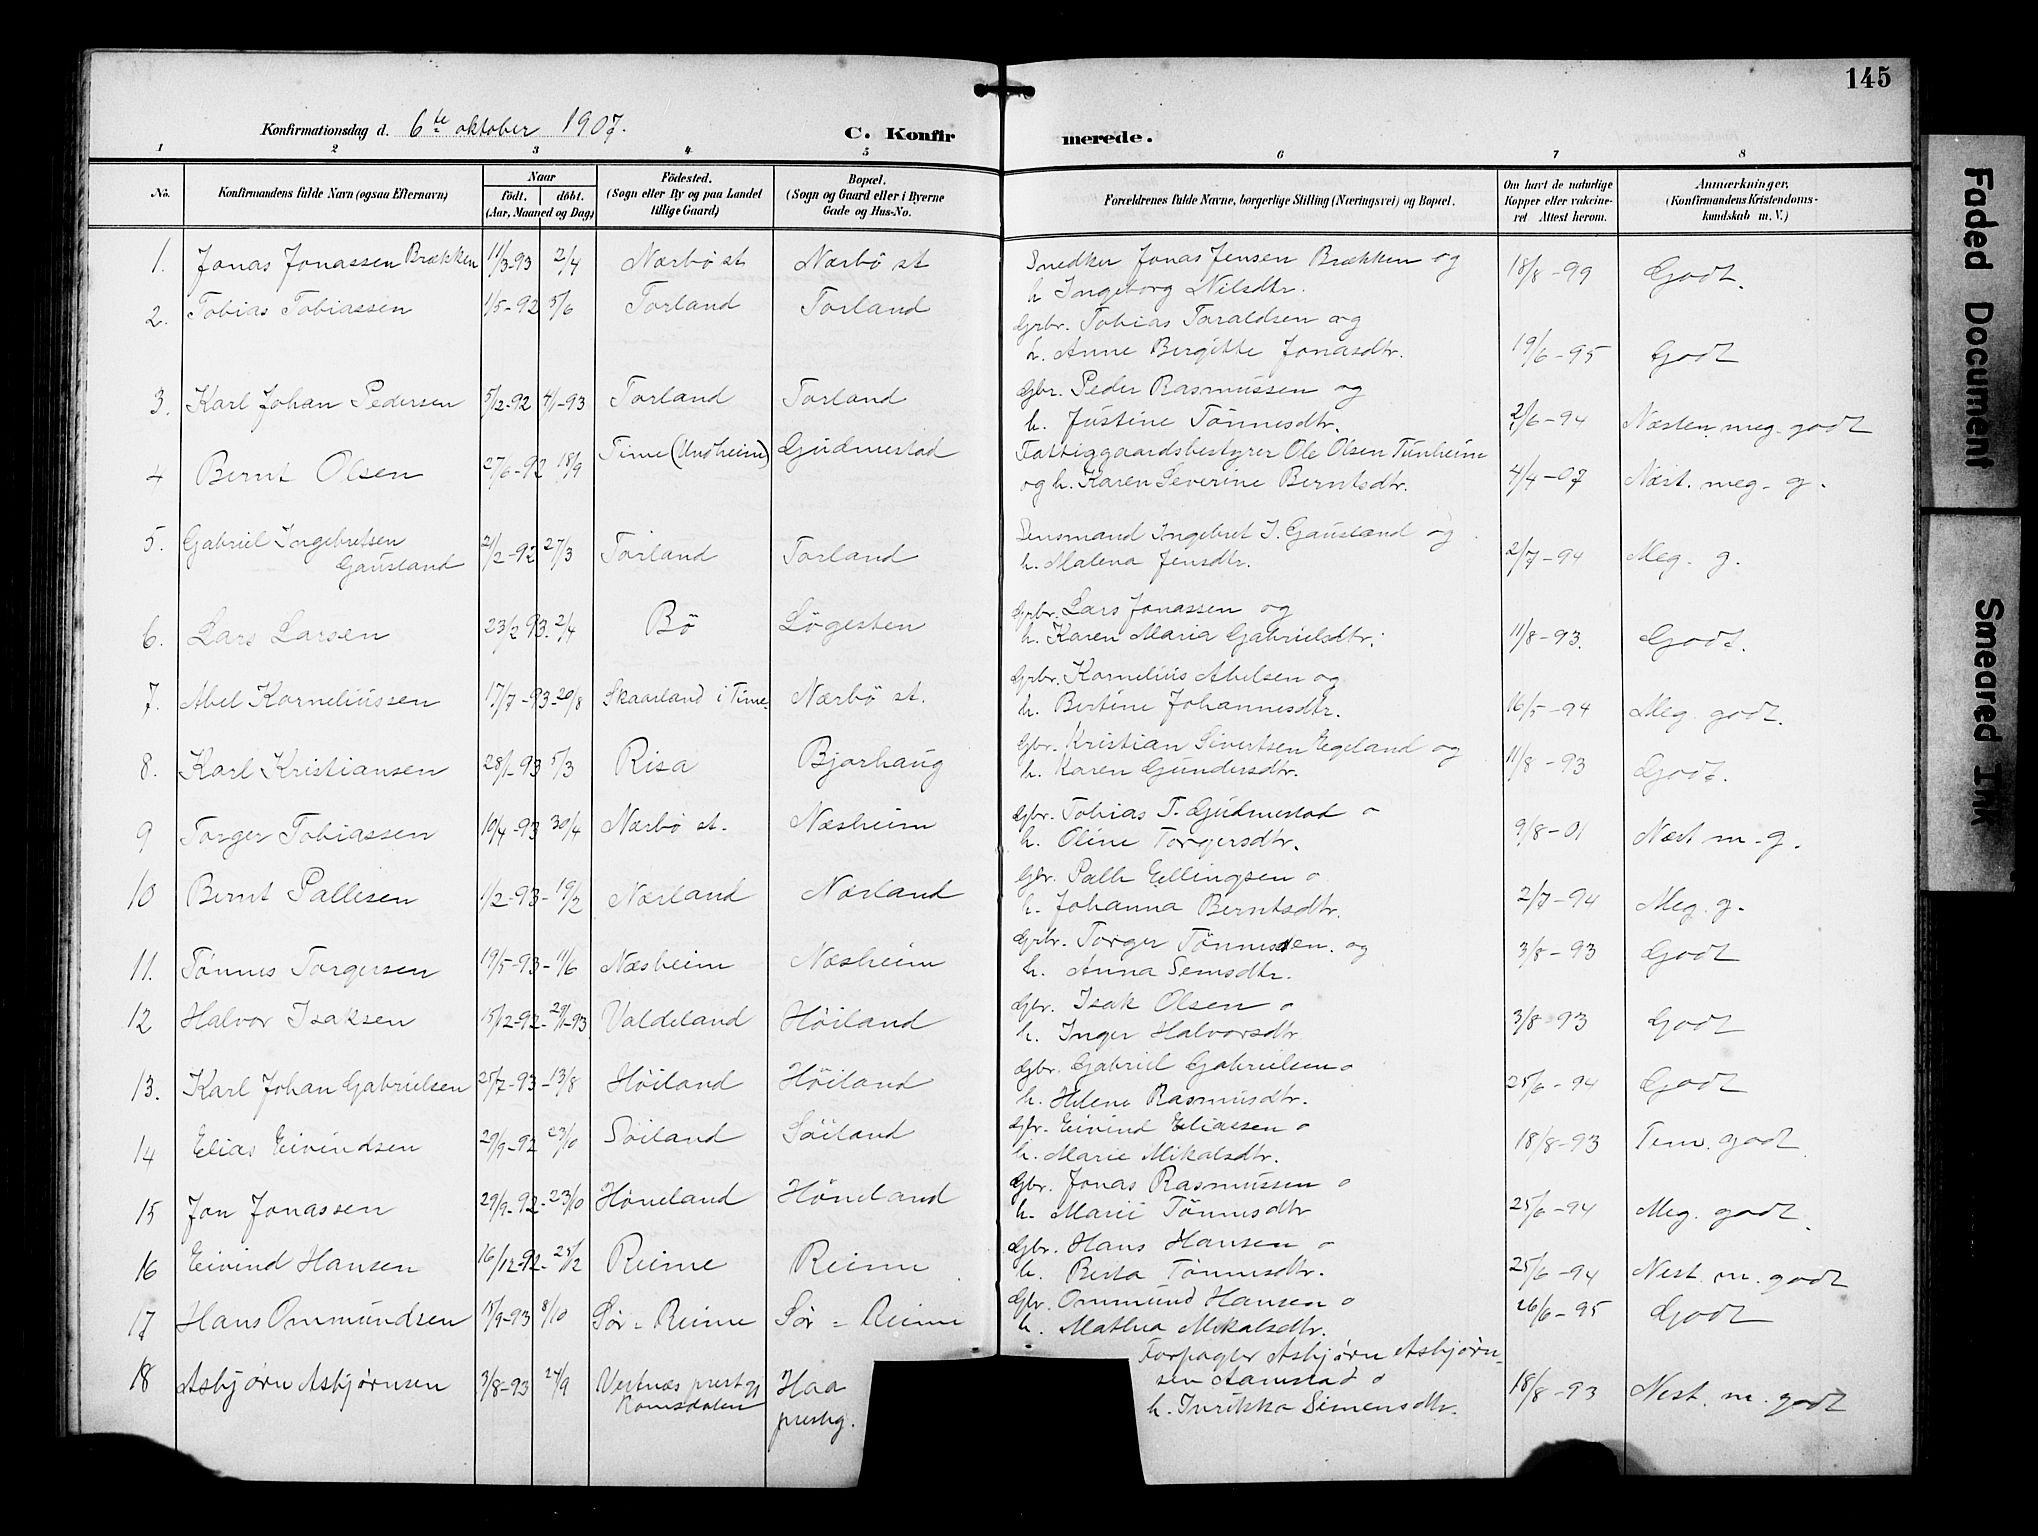 145
Konfirmationsdag d. 6te oktober 1907.
C. Konfirmerede.
1 2 3 4 5 6 7 8
No. Konfirmandens fulde Navn (ogsaa Efternavn) Naar født. døbt. (Aar, Maaned og Dag) Fødested. (Sogn eller By og paa Landet tillige Gaard) Bopæl. (Sogn og Gaard eller i Byerne Gade og Hus-No.) Forældrenes fulde Navne, borgerlige Stilling (Næringsvei) og Bopæl. Om havt de naturlige Kopper eller vakcineret Attest herom. Anmærkninger. (Konfirmandens Kristendomskundskab m. V.)
1. Jonas Jonassen Brækken 11/3-93 2/4 Nærbö st Nærbö st Snedker Jonas Jensen Brækken og 18/8-99 Godt.
h Ingeborg Nilsdtr.
2. Tobias Tobiassen 1/5-92 5/6 Torland Torland Grbr. Tobias Toraldsen og
h. Anne Birgitte Jonasdtr. 19/6-95 Godt
3. Karl Johan Pedersen 5/12-92 4/1-93 Torland Torland Gbr. Peder Rasmussen og
h. Justine Tönnesdtr. 2/6-94 Næsten meg. godt
4 Bernt Olsen 27/6-92 18/9 Time (Undheim) Gudmestad Fattiggaardsbestyrer Ole Olsen Tunheim
og h. Karen Severine Berntsdtr. 4/4-07 Næst. meg. g.
5. Gabriel Ingebretsen Gausland 2/2-92 27/3 Torland Torland Lensmand Ingebret I. Gausland og
h. Malena Jensdtr. 2/7-94 Meg. g.
6. Lars Larsen 23/2-93. 2/4 Bö Lögesten Grbr. Lars Jonassen og
h. Karen Maria Gabrielsdtr. 11/8-93. Godt.
7. Abel Korneliussen 17/7-93-20/8 Skaarland i Time. Nærbö st. Grbr. Kornelius Abelsen og
h. Bertine Johannesdtr. 16/5-94 Meg. godt.
8. Karl Kristiansen 28/1-93 5/3 Risa Bjorhaug Gbr. Kristian Sivertsen Egeland og
h. Karen Gundersdtr. 11/8-93 Godt.
9 Torger Tobiassen 10/4-93 30/4 Nærbö st. Næsheim Gbr. Tobias T. Gudmestad o
h. Oline Torgersdtr. 9/8-01 Næst m. g.
10 Bernt Pallesen 1/2-93-19/2 Nærland Nærland Gbr. Palle Ellingsen o
h. Johanna Berntsdtr. 2/7-94 Meg. g.
11. Tönnes Torgersen 19/5-93-11/6 Næsheim Næsheim Grbr. Torger Tönnesen. og 3/8-93 Godt
h. Anna Semsdtr.
12 Halvor Isaksen 15/12-92-29/1-93 Valdeland Höiland Gbr. Isak Olsen o
h. Inger Halvorsdtr 3/8-93 Godt
13. Karl Johan Gabrielsen 25/7-93-13/8 Höiland Höiland Gbr. Gabriel Gabrielsen o
h. Helene Rasmusdtr. 25/6-94 Godt
14 Elias Eivindsen 29/9-92 23/10 Söiland Söiland Gbr. Eivind Eliassen o
h. Marie Mikalsdtr. 18/8-93 Tem. godt
15 Jon Jonassen 29/9-92-23/10 Höneland Höneland Gbr. Jonas Rasmussen o
h. Marie Tönnesdtr 25/6-94 Meg. godt.
16 Eivind Hansen 16/12-92-25/12 Reime Reime Gbr. Hans Hansen o
h. Berta Tönnesdtr. 25/6-94 Nest. m. godt
17 Hans Ommundsen 15/9-93 8/10 Sør-Reime Sør-Reime Gbr. Ommund Hansen o 26/6-95 Godt
h. Mathea Mikalsdtr.
18 Asbjørn Asbjørnsen 3/8-93 24/9 Vestnæs prestg Romsdalen Haa prestg. Forpagter Asbjørn Asbjørnsen Aamstad o
h. Inrikka Simensdtr. 18/8-93 Nest. m. godt
Faded Document
Smeared Ink